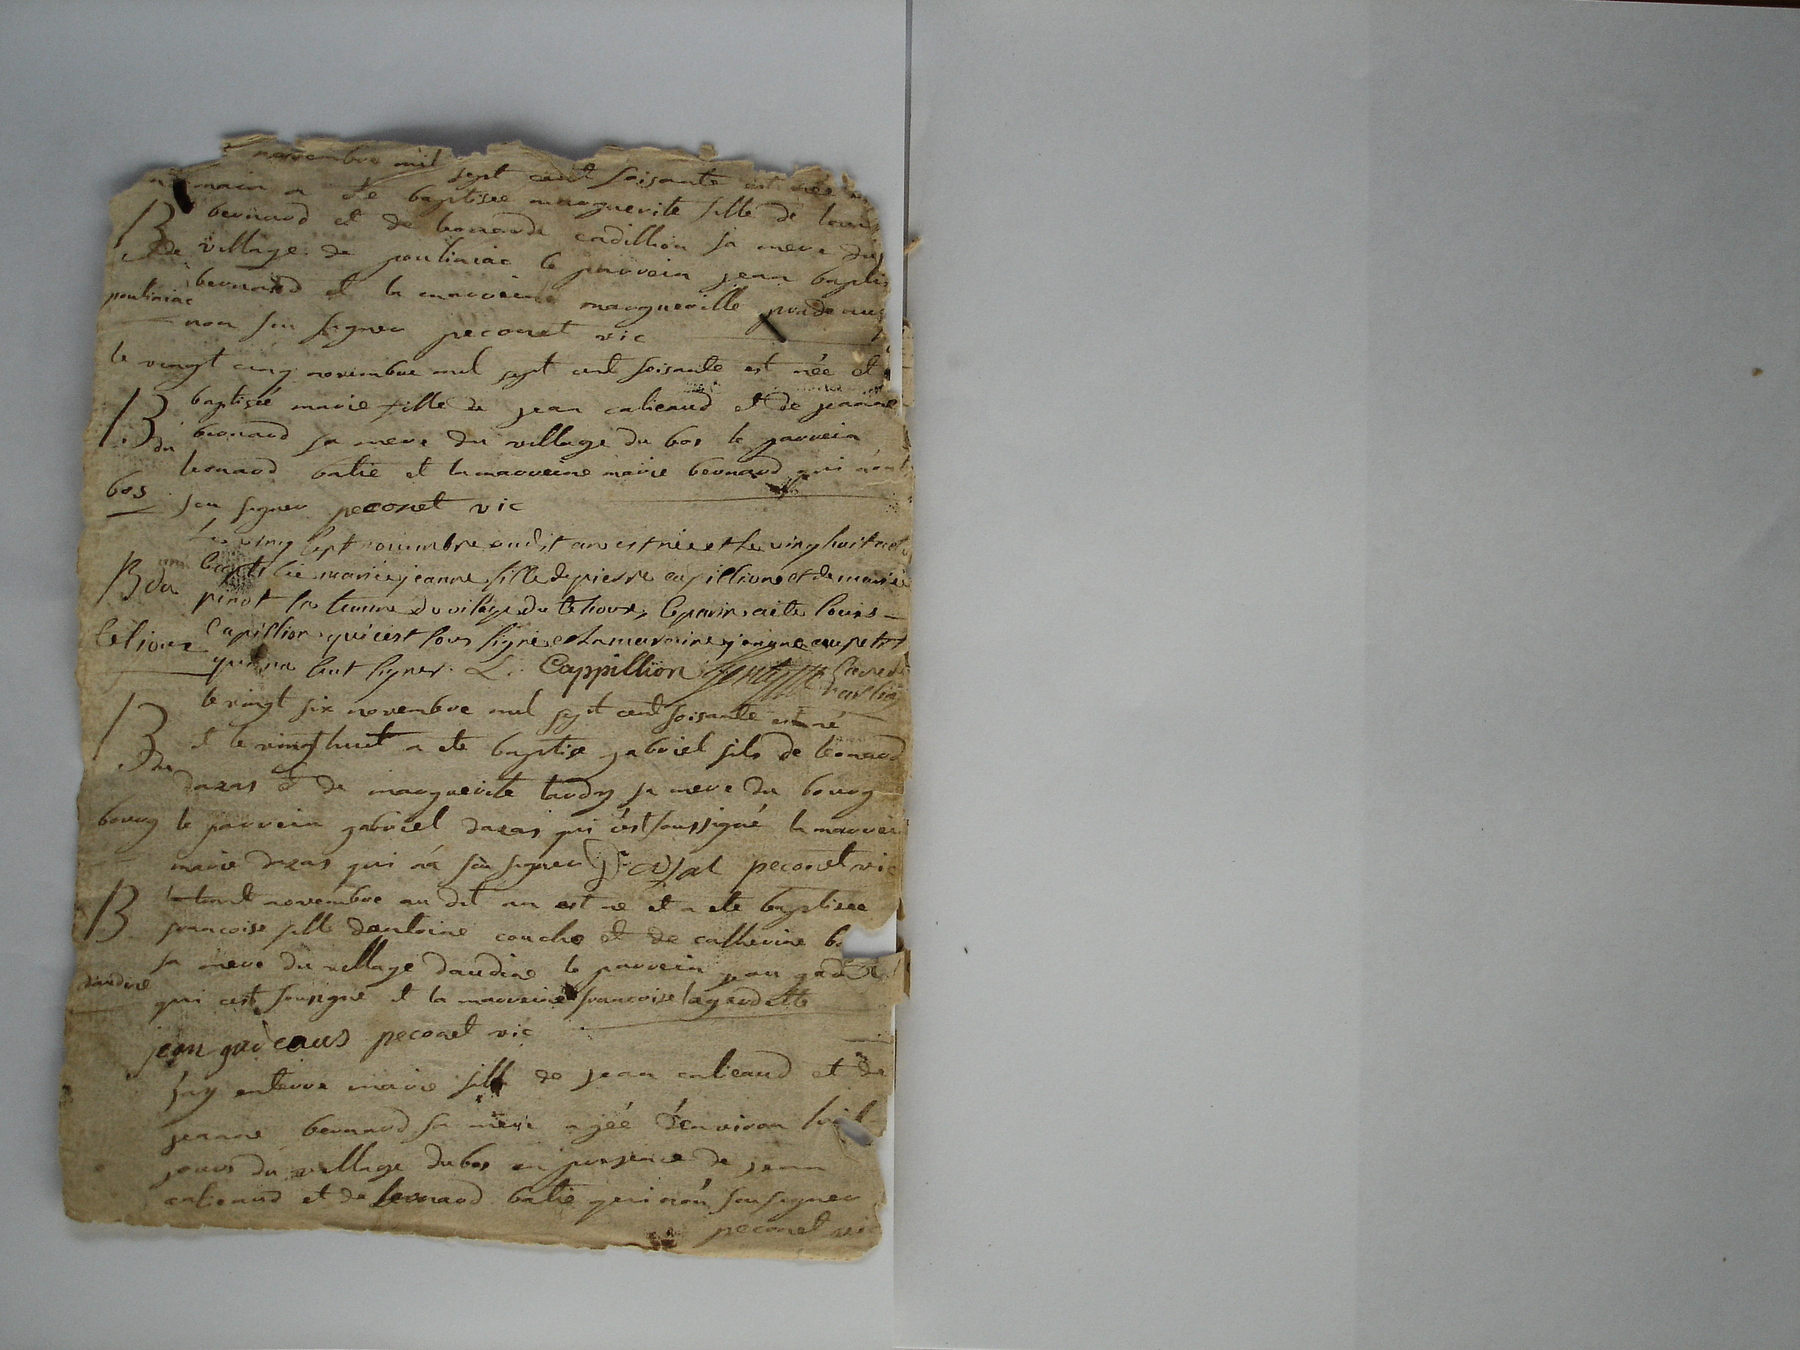 novembre mil sept cent soisante est née
a été baptisee marguerite fille de
B bernard et de leonarde cadillion sa mere du
de village de pouliniac le parrein jean baptis
pouliniac bernard et la marreine marguerille
non su signer peconet vic
le vingt cinq novembre mil sept cent soisante est née et
B baptisée marie fille de jean calicaud et de jeanne
du bernard sa mere du village du bos le parrein
leonard batie et la marreine marie bernard qui n'ont
bos su signer peconet vic
Le vingt sept novembre audit an est née et le vingt huit a
B du baptisée marie jeanne fille de pierre capillione et de marie
pinot sa femme du vilage du telioux, le parin a ete louis
telioux Capillion qui c'est sous signé et la maraine
qui na seut signer. L. Cappillion
le vingt six novembre mil sept cent soisante est né
B et le vingt huit a ete baptise gabriel fils de leonard
du dazas et de marguerite tardy sa mere du bourg
bourg le parrein gabriel dazas qui c'est soussigné la marrei
marie dazas qui n'a su signer peconet vic
B le trente novembre au dit an est né et a ete baptisee
francoise fille dantoine couche et de catherine
sa mere du village daudine le parrein jean
daudine qui cest sousigné et la marreine francoise lagardette
jean peconet vic
jay enterre marie fille de jean calicaud et de
jeanne bernard sa mere agée d'environ huit
jours du village du bos en presence de jean
calicaud et de leonard batie qui n'on su signer
peconet vic